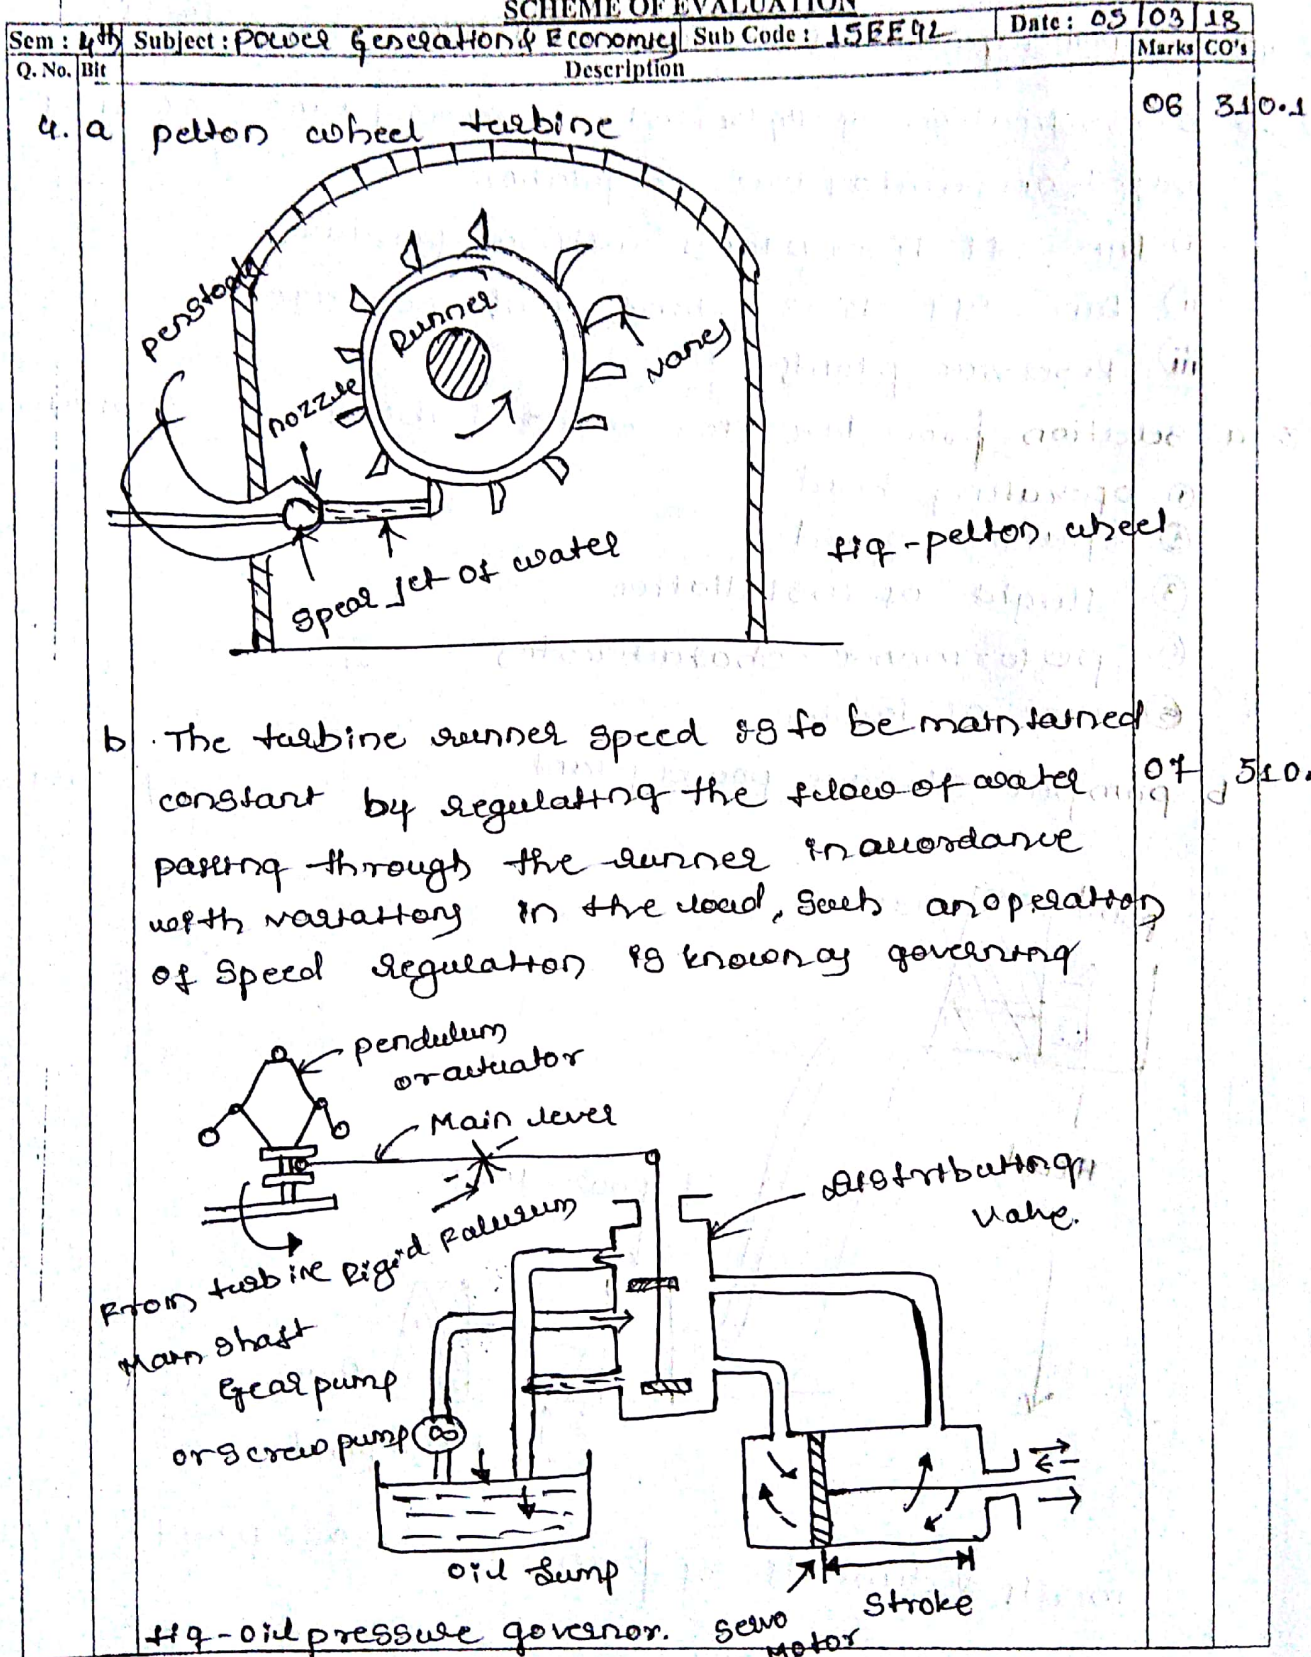 SCHEME OF EVALUATION
Sem : 4th Subject : Power Generation & Economics Sub Code : 15EE42 Date : 05 03 18
Q. No. Bit Description Marks CO's
4. a pelton wheel turbine 06 310.1
penstock
Runner
nozzle
vanes
Spear jet of water
fig - pelton wheel
b . The turbine runner speed is to be maintained
constant by regulating the flow of water 07 510.
passing through the runner in accordance
with variations in the load, such an operation
of speed regulation is known as governing
pendulum
or actuator
Main lever
Distributing
valve.
From turbine Rigid
Main shaft
Gear pump
or screw pump
oil sump
Stroke
Servo
Motor
fig - oil pressure governor.